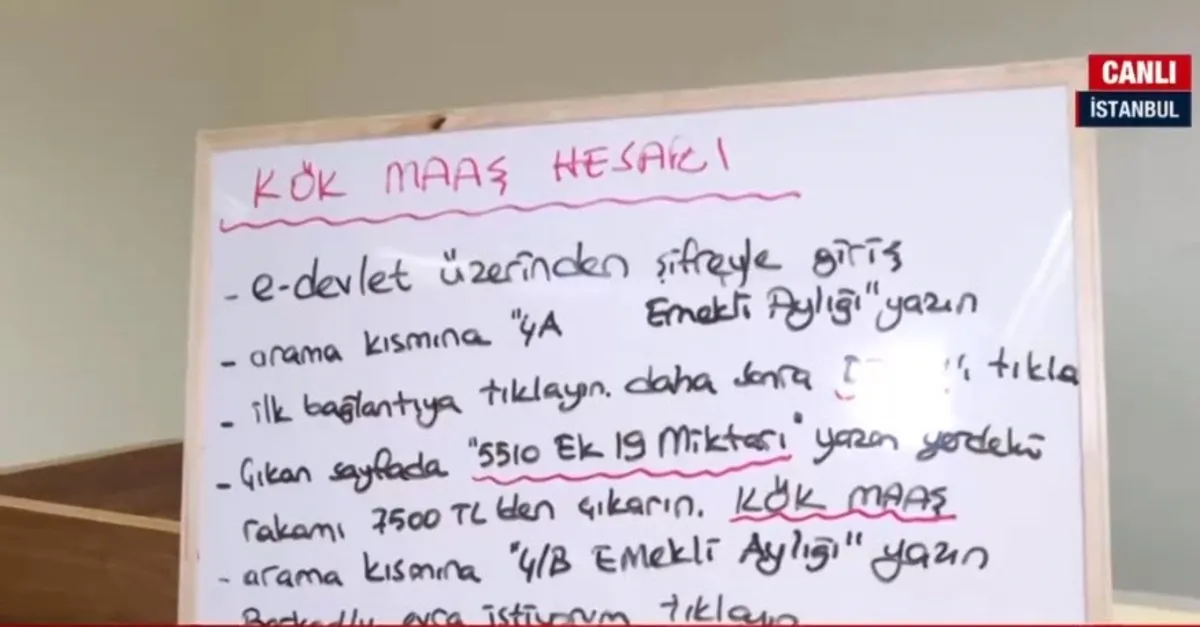 CANLI
İSTANBUL
KÖK MAAŞ HESABI
- e-devlet üzerinden şifreyle giriş
- arama kısmına "4A Emekli Aylığı" yazın
- ilk bağlantıya tıklayın. daha sonra tıkla
- Çıkan sayfada "5510 Ek 19 Miktarı" yazan yerdeki
rakamı 7500 TL'den çıkarın. KÖK MAAŞ
- arama kısmına "4/B Emekli Aylığı" yazın
istiyorum tıklayın